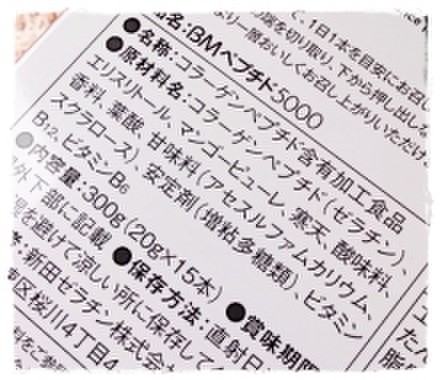 て、1日1本を目安にお召し
端を切り取り、下から押し出しな
より一層おいしくお召し上がりいただけ
品名:BMペプチド5000
●名称:コラーゲンペプチド含有加工食品
●原材料名:コラーゲンペプチド(ゼラチン)、
エリスリトール、マンゴーピューレ、寒天、酸味料、
香料、葉酸、甘味料(アセスルファムカリウム、
スクラロース)、安定剤(増粘多糖類)、ビタミン
B12、ビタミンB6
●内容量:300g(20g×15本) ●賞味期限
外下部に記載 ●保存方法:直射日
を避けて涼しい所に保存して
新田ゼラチン株式会
区桜川4丁目4